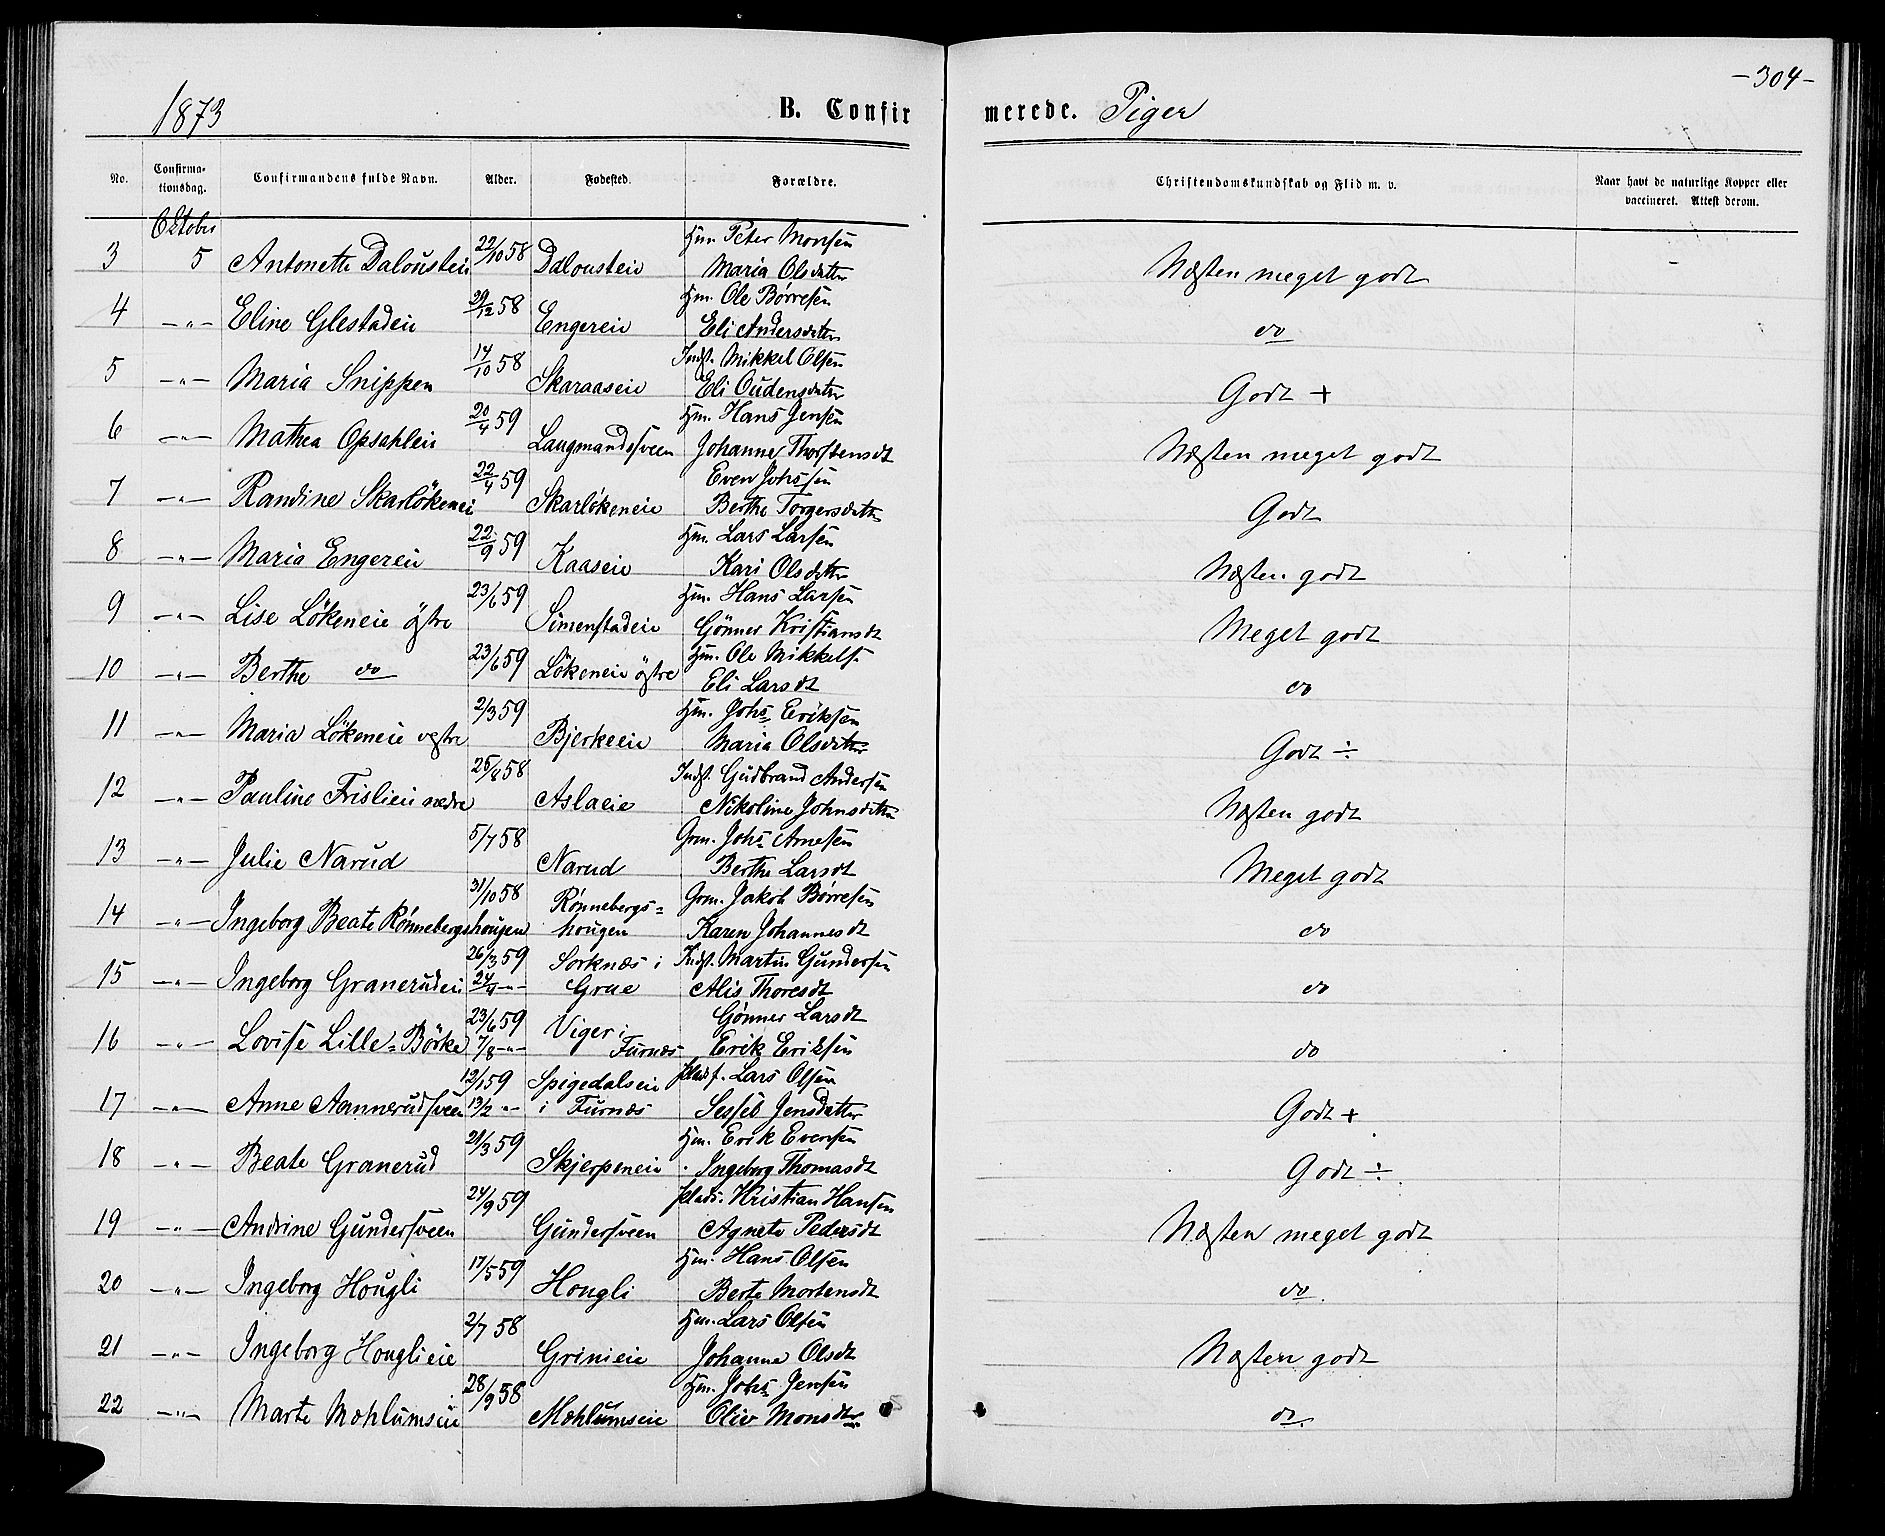 1873 B. Confirmerede. Piger -304-
No. Confirmationsdag. Confirmandens fulde Navn. Alder. Fødested. Forældre. Christendomskundskab og Flid m. v. Naar havt de naturlige Kopper eller vaccineret. Attest derom.
Oktober
Hm. Peter Monsen
3 5 Antonette Dalousteie 22/10 58 Dalousteie Maria Olsdatter Næsten meget godt -
Hm. Ole Børresen
4 -"- Eline Glestadeie 29/12 58 Engereie Eli Andersdatter do
Indst. Mikkel Olsen
5 -"- Maria Snippen 14/10 58 Skaraaseie Eli Oudensdatter Godt +
Hm. Hans Jensen
6 -"- Mathea Opsahleie 20/4 59 Laugmandssveen Johanne Thorstensdt Næsten meget godt
Even Johssen
7 -"- Randine Skarlökeneie 22/4 59 Skarlökeneie Berthe Torgersdatter Godt
Hm. Lars Larsen
8 -"- Maria Engereie 22/9 59 Kaaseie Kari Olsdatter Næsten godt
Hm. Hans Larsen
9 -"- Lise Lökeneie östre 23/6 59 Simenstadeie Gönner Kristiansdt Meget godt
Hm. Ole Mikkels.
10 -"- Berthe do 23/6 59 Lökeneie östre Eli Larsdt do
Hm. Johs Eriksen
11 -"- Maria Lökeneie vestre 2/3 59 Bjerkeeie Maria Olsdatter Godt ÷
Indst. Gudbrand Andersen
12 -"- Pauline Frislieie nedre 26/8 58 Aslaeie Nikoline Johnsdatter Næsten godt
Grm. Johs Arnesen
13 -"- Julie Narud 5/7 58 Narud Berthe Larsdt Meget godt
Grm. Jakob Børresen
14 -"- Ingeborg Beate Rønnebergshougen 31/10 58 Rønnebergs=hougen Karen Johannesdt do
Indst. Martin Gundersen
15 -"- Ingeborg Granerudeie 26/3 59 24/4 -"- Sorknæs i Grue Alis Thoresdt do
Gönner Larsdt
16 -"- Lovise Lille=Börke 23/6 59 7/8 -"- Viger i Furnæs Erik Eriksen do
Plads f. Lars Olsen
17 -"- Anne Aannerudsveen 12/1 59 13/2 -"- Spigedalseie i Furnæs Sesseb Jensdatter Godt +
Hm. Erik Evensen
18 -"- Beate Granerud 21/3 59 Skjerpeneie Ingeborg Thomasdt Godt ÷
Plads. Kristian Hansen
19 -"- Andrine Gundersveen 24/9 59 Gundersveen Agnete Pedersdt Næsten meget godt
Hm. Hans Olsen
20 -"- Ingeborg Hougli 17/5 59 Hougli Berte Mortensdt do.
Hm. Lars Olsen
21 -"- Ingeborg Houglieie 2/7 58 Grinieie Johanne Olsdt Næsten godt
Hm. Johs Jensen
22 -"- Marte Mæhlumseie 28/9 58 Mæhlumseie Oliv Monsdt do.